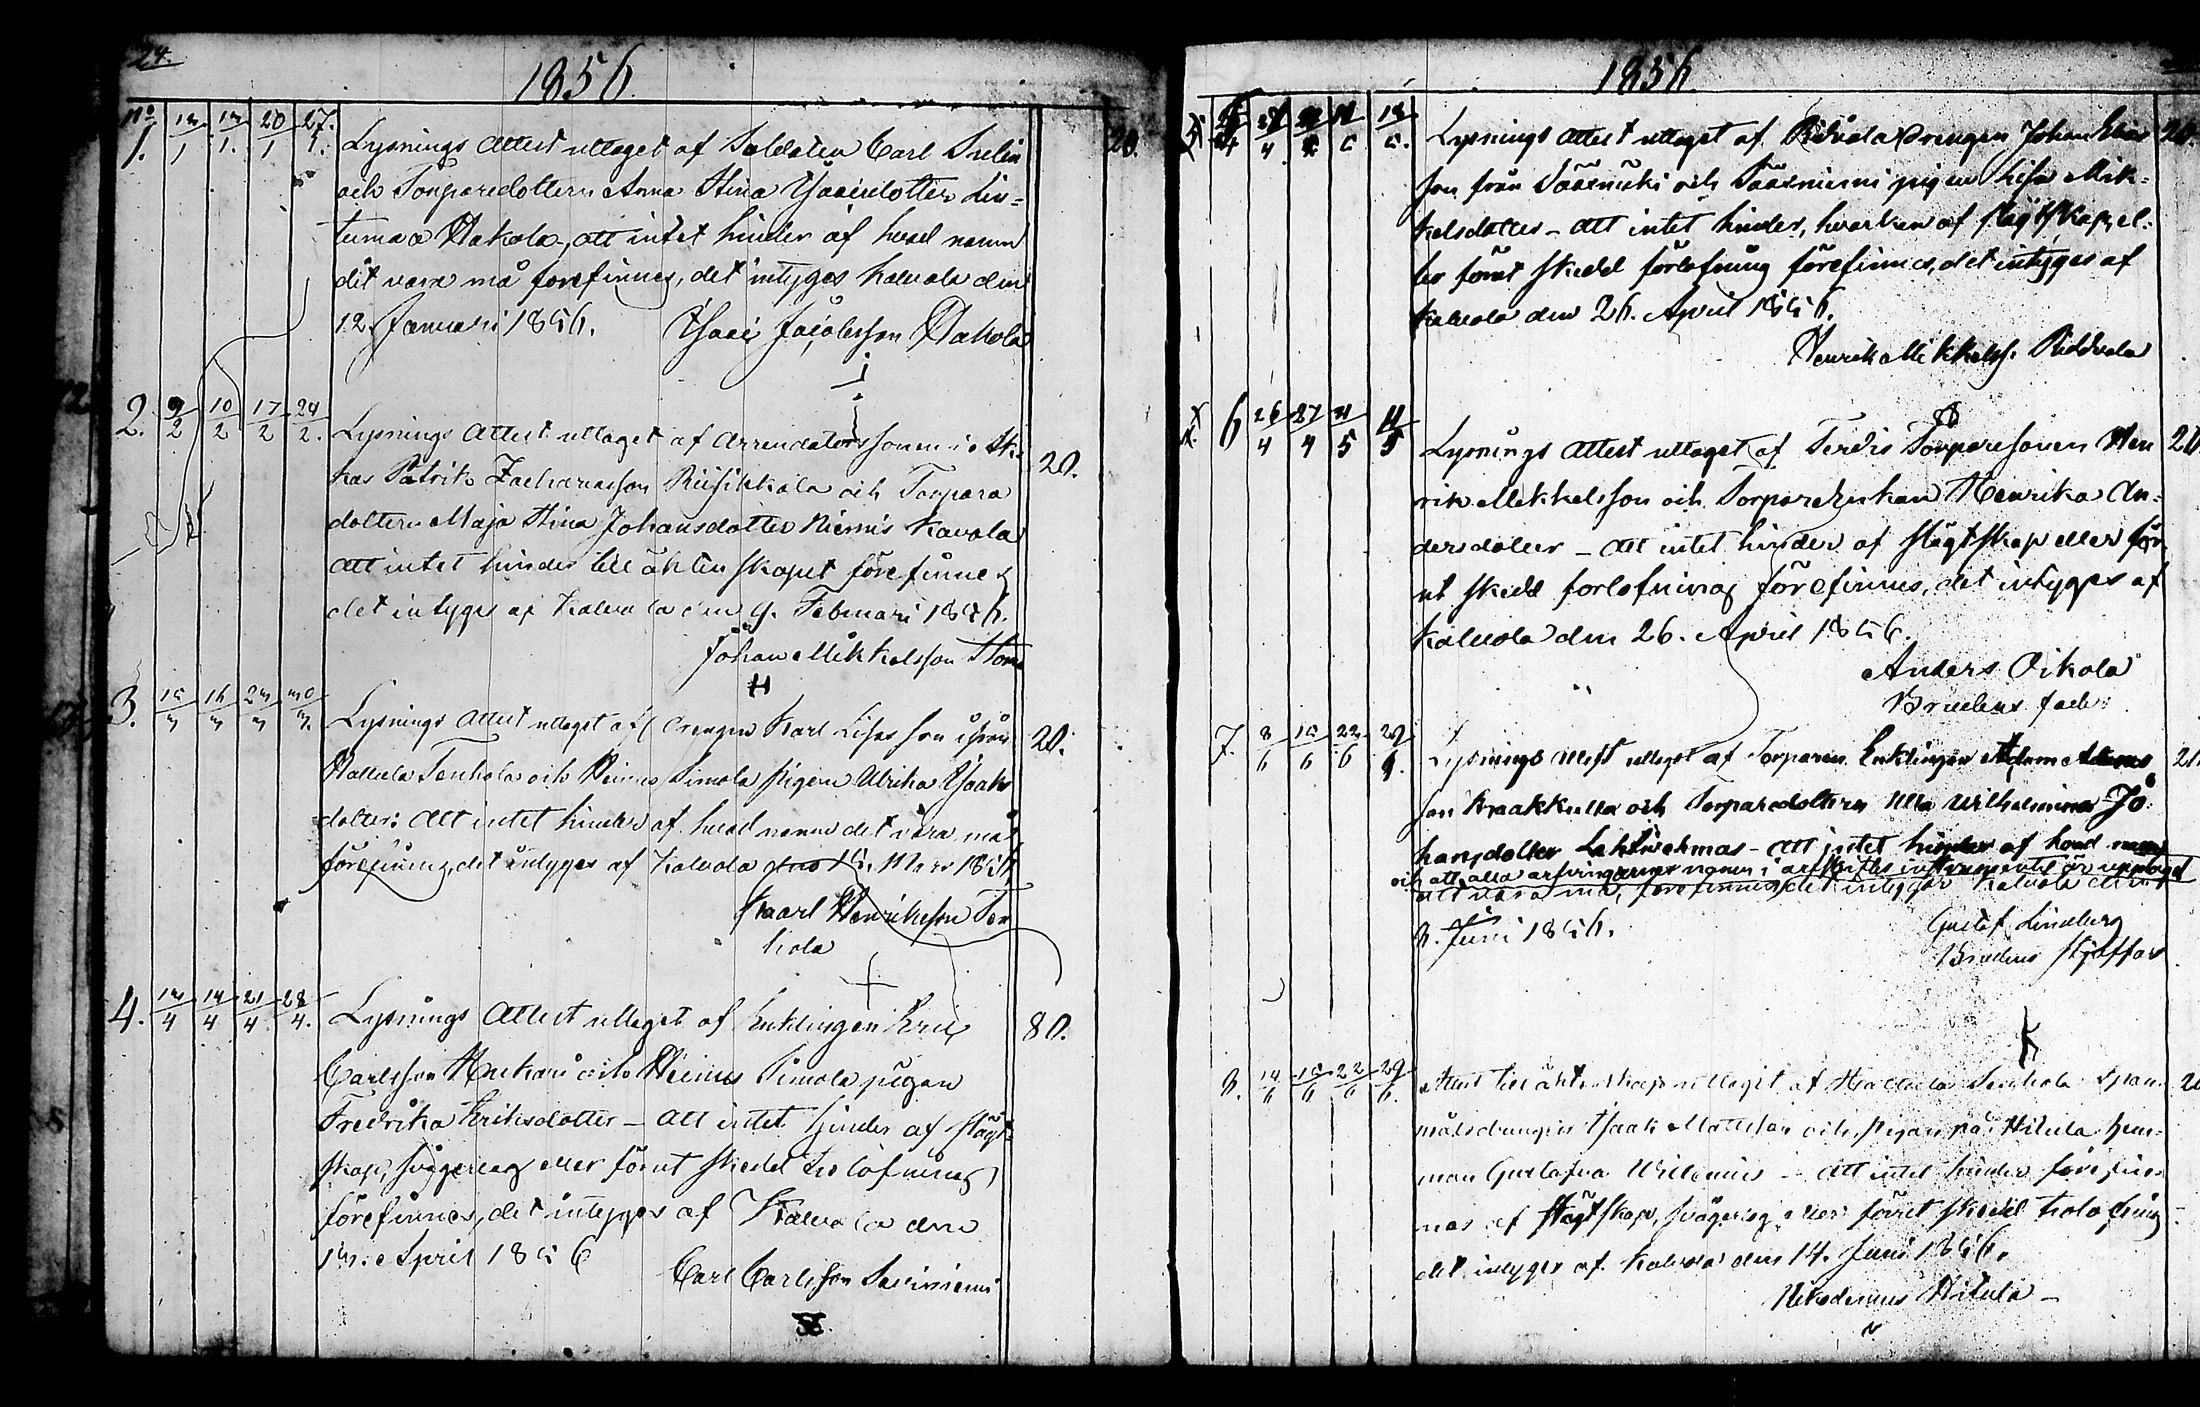 24.
1856.
No 1. 12/1 13/1. 20/1 27/1. 20.
Lysnings Attest uttaget af Soldaten Carl
och Torparedottern Anna Stina Isacsdotter Lin=
tumaa Hakola, att intet hinder af hvad namn
det vara må förefinnes, det intyges Kalvola den
12. Januari 1856. Isac Jacobsson Hakola
2. 9/2 10/2 17/2 24/2. 20.
Lysnings Attest uttaget af Arrendatorssonen
Patrik Zachariasson Riisikkala och Torpare
dottern Maja Stina Johansdotter Niemis Kavola
att intet hinder till äktenskapet förefinnes
det intyges af Kalvola den 9. Februari 1856.
Johan Mikkelsson
3. 15/3 16/3 23/3 30/3. 20.
Lysnings Attest uttaget af drengen Karl Lisas son ifrån
Tenhola och Niemis Simola pigan Ulrika Isaks
dotter: Att intet hinder af hvad namn det vara må
förefinnes, det intyges af Kalvola den 15. Mars 1856
Kaarl Henriksson Ten
hola
4. 13/4 14/4 21/4 28/4. 80.
Lysnings Attest uttaget af Enklingen Eric
Carlsson och Niemis Simola pigan
Fredrika Eriksdotter – att intet hinder af slägt
skap, svågerlag eller förut skedd trolofning
förefinnes, det intyges af Kalvola den
13. April 1856
Carl Carlsson Saviniemi
1856
5 27/4 11/5 18/5. 20.
Lysnings Attest uttaget af Ridvala Drengen Johan
son från Sääxmäki och Pääxniemi pigan Lisa Mik=
kelsdotter – att intet hinder, hvarken af slägtskap, el=
ler förut skedd förlofning förefinnes, det intyges af
Kalvola den 26. April 1856.
Henrik Mikkelss. Riddvala
6 26/4 27/4 5 11/5 20
Lysnings Attest uttaget af Torparesonen Hen
rik Mikkelsson och Torpareenkan Henrika An=
dersdotter – att intet hinder af slägtskap eller för
ut skedd förlofning förefinnes, det intyges af
Kalvola den 26. April 1856.
Anders Oikola
Brudens fader
7. 8/6 15/6 22/6 29/6.
Lysnings Attest uttaget af Torparen Enklingen Adam Adams
son Kraakkulla och Torparedottern Ulla Wilhelmina Jo=
hansdotter – att intet hinder af hvad namn
och att alla arfvingarnes namn i arfskiftes instrumentet är
att vara må, förefinnes, det intyges Kalvola den
8. Juni 1856.
Gustaf Lindberg
Brudens Styffar
8. 14/6 15/6 22/6 29/6.
Attest till äktenskap uttaget af Tenhola
målsdrengen Isaak Mattsson och pigan på Hitula hem=
man Gustafva Willenius – att intet hinder förefin=
nes af slägtskap, svågerlag eller förut skedd trolofning
det intyges af Kalvola den 14. Juni 1856.
Nikodemus Hitula –